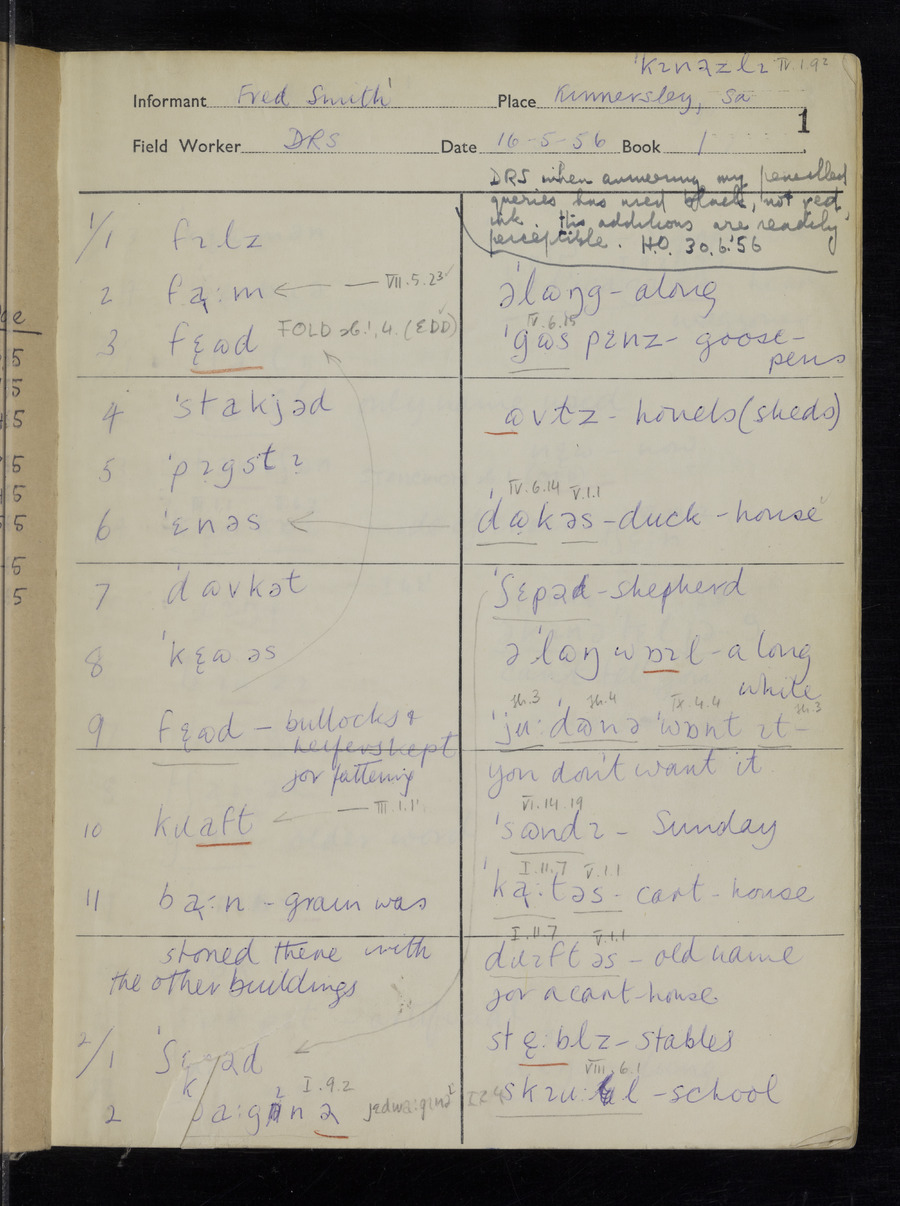 ˈkɪnəzlɪ IV.1.9²
Informant Fred Smith Place Kinnersley, Sa
1
Field Worker DRS Date 16-5-56 Book 1
DRS when answering my pencilled
queries has used black, not red,
ink. His additions are readily
perceptible. H.O. 30.6.'56
1/1 fɪlz
2 fạ:m ← — VII.5.23 əˈlɷŋg - along
3 fɛ̣ɷd FOLD sb.¹, 4. (EDD) IV.6.15
ˈgɷs pɛnz - goose-
pens
4 ˈstakjəd ɷvtz - hovels (sheds)
5 ˈpɪgstɪ
IV.6.14 V.1.1
6 ˈɛnəs ← ˈdɷkəs - duck-house
7 ˈdɷvkət ˈʃɛpəd - shepherd
8 ˈkɛ̣ɷəs əˈlɷŋ wɒɪl - along
while
9 fɛ̣ɷd - bullocks &
heifers kept
for fattening
IX.4.4
ˈju: dɷnə ˈwɒnt ɪt -
you don't want it
10 kɹaft ← — III.1.11
VI.14.19
ˈsɷndɪ - Sunday
I.11.7 V.1.1
11 bạ:n - grain was ˈkạ:təs - cart-house
stored there with
the other buildings
I.11.7 V.1.1
dɹɪftəs - old name
for a cart-house
2/1 ˈʃɛpəd ← stɛ̣:blz - stables
VIII.6.1
skɪu:l - school
2 I.9.2